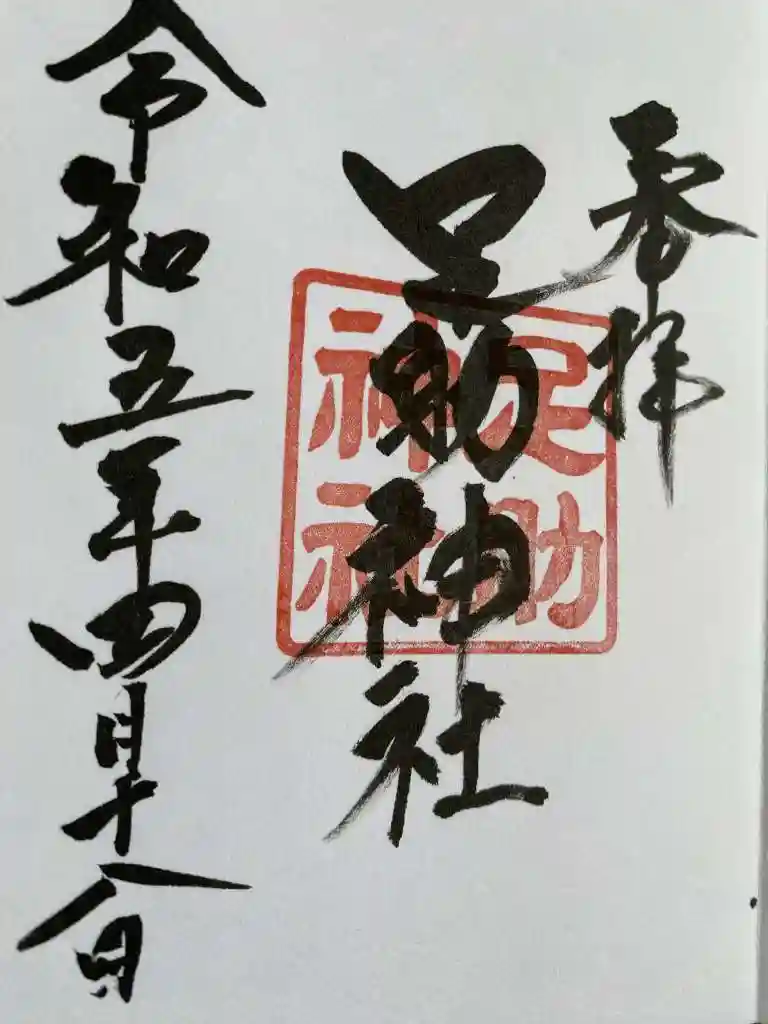 奉拝
足助神社
足助
神社
令和五年四月十八日